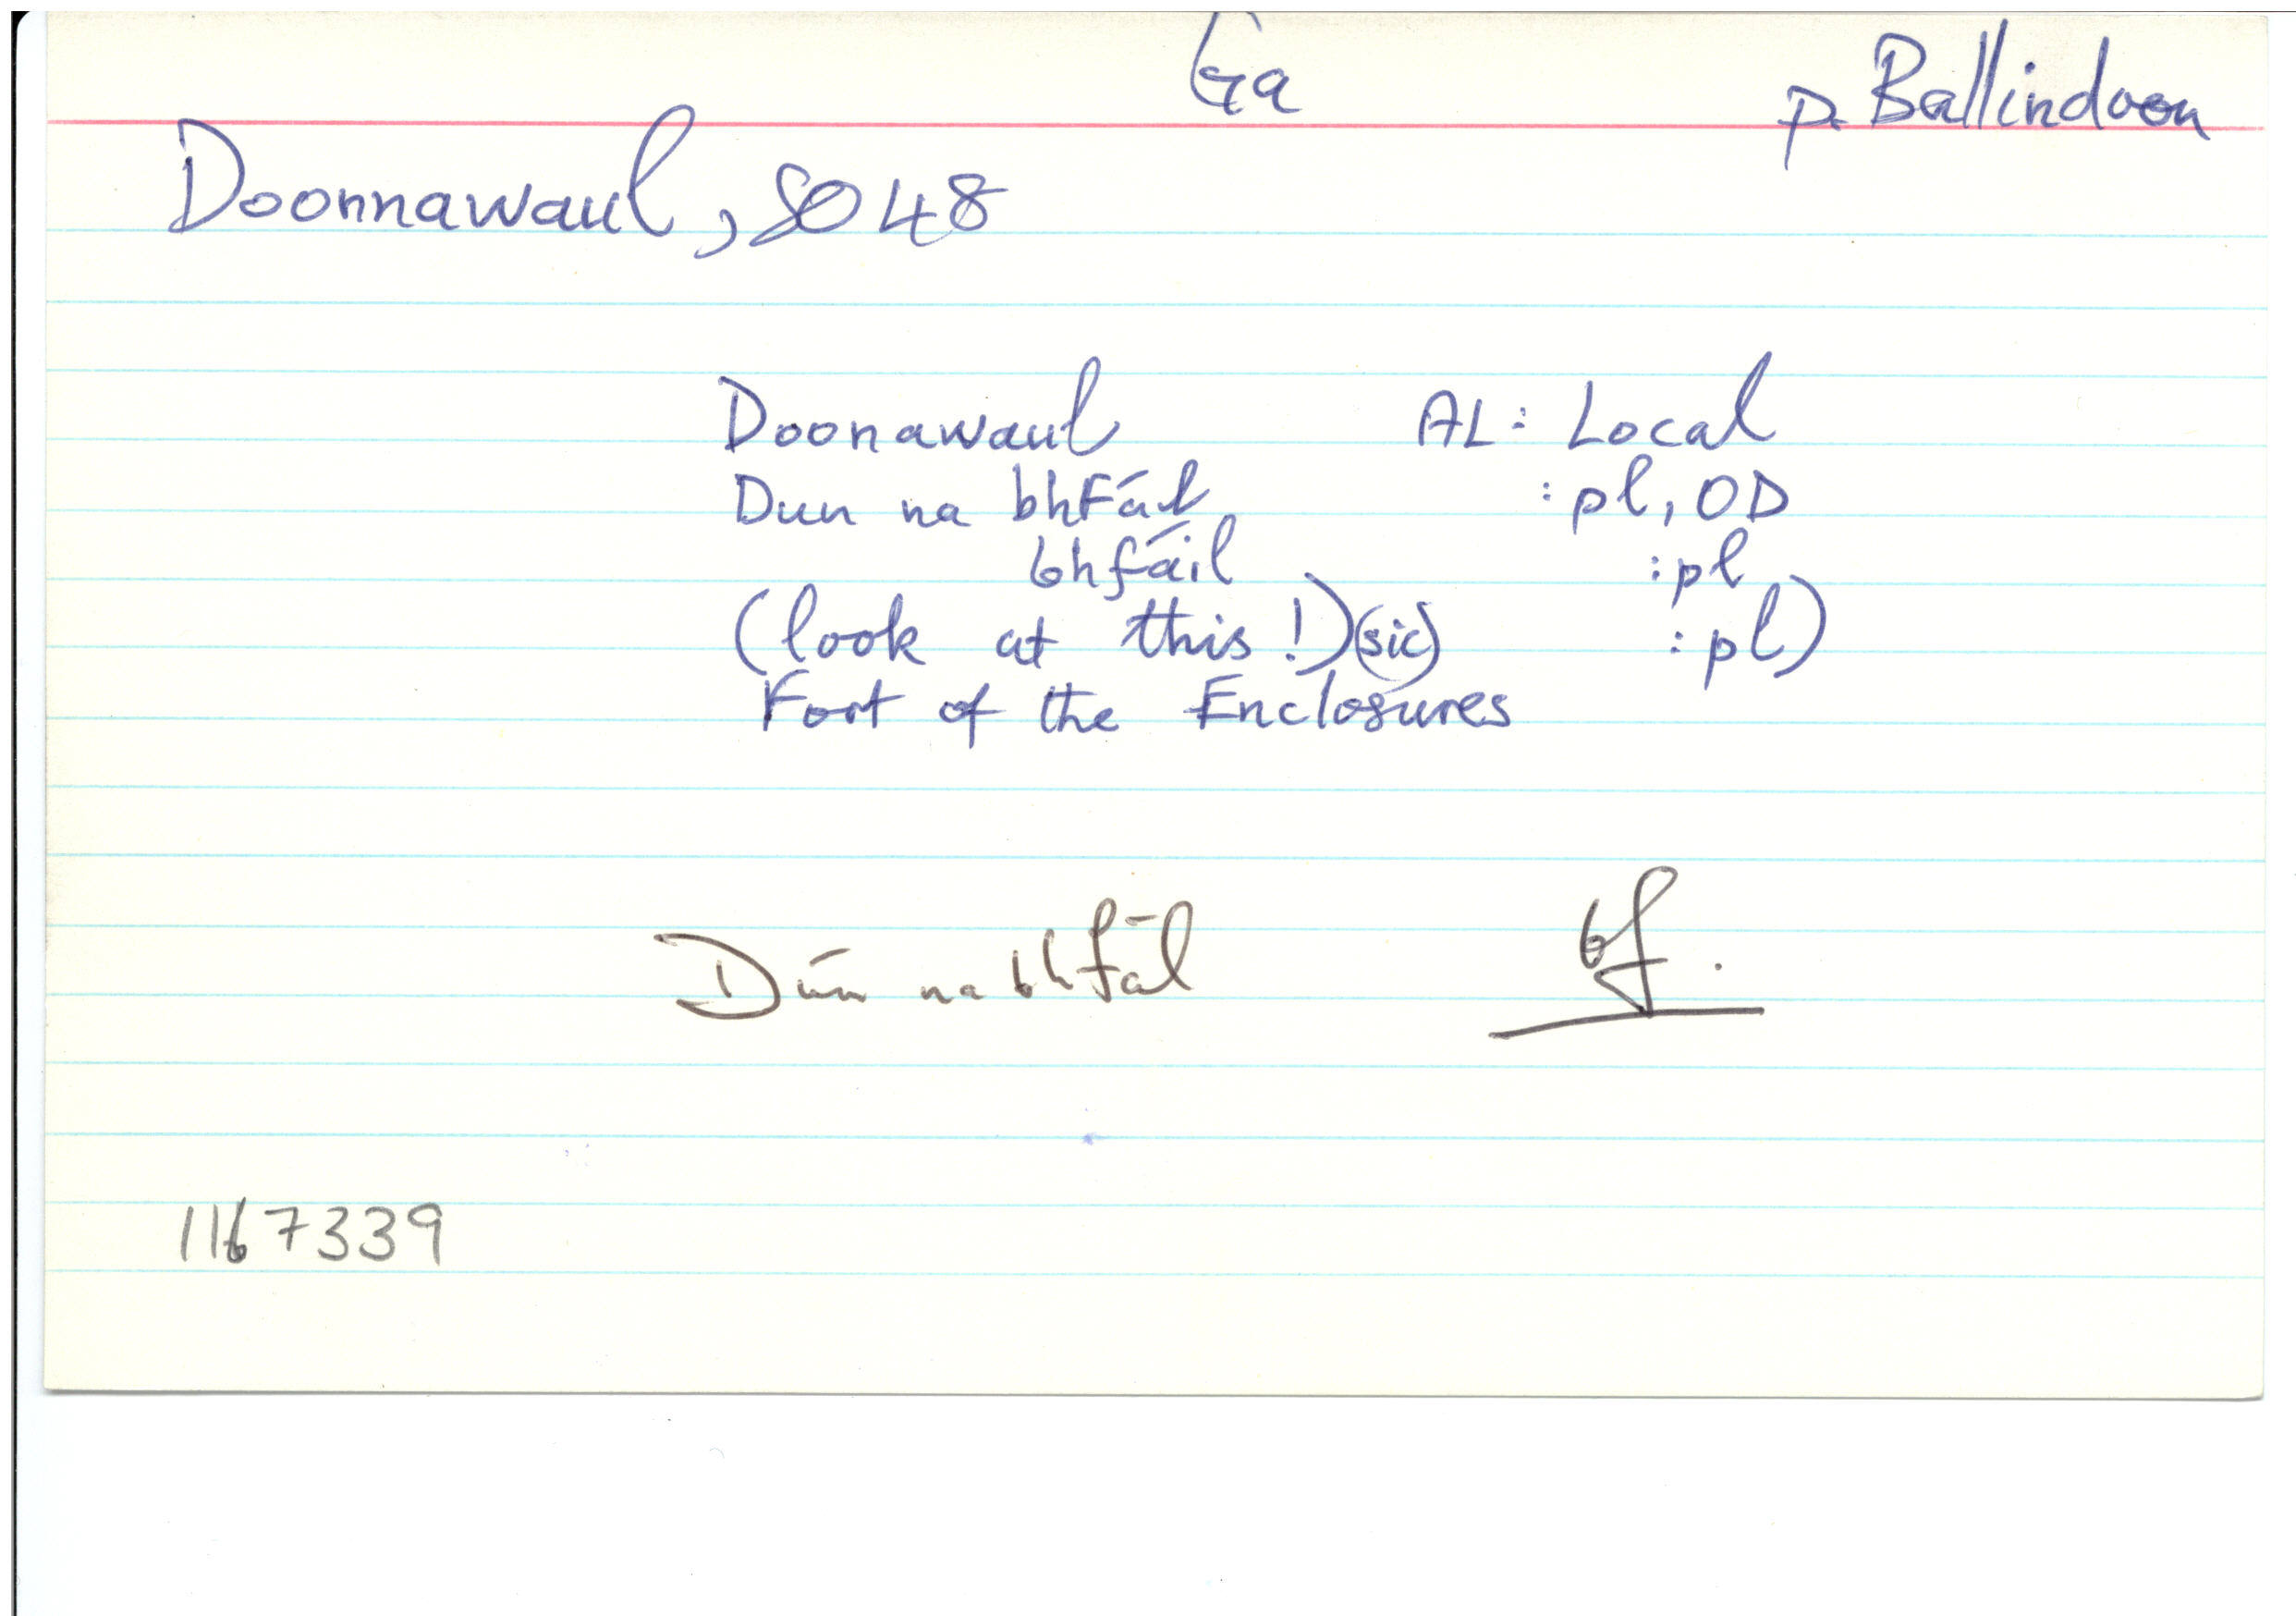 Ga p. Ballindoon
Doonnawaul, SO 48
Doonawaul AL: Local
Dun na bhFál :pl, OD
bhfáil :pl
(look at this!)(sic) :pl)
Fort of the Enclosures
Dún na bhFál bf.
1167339